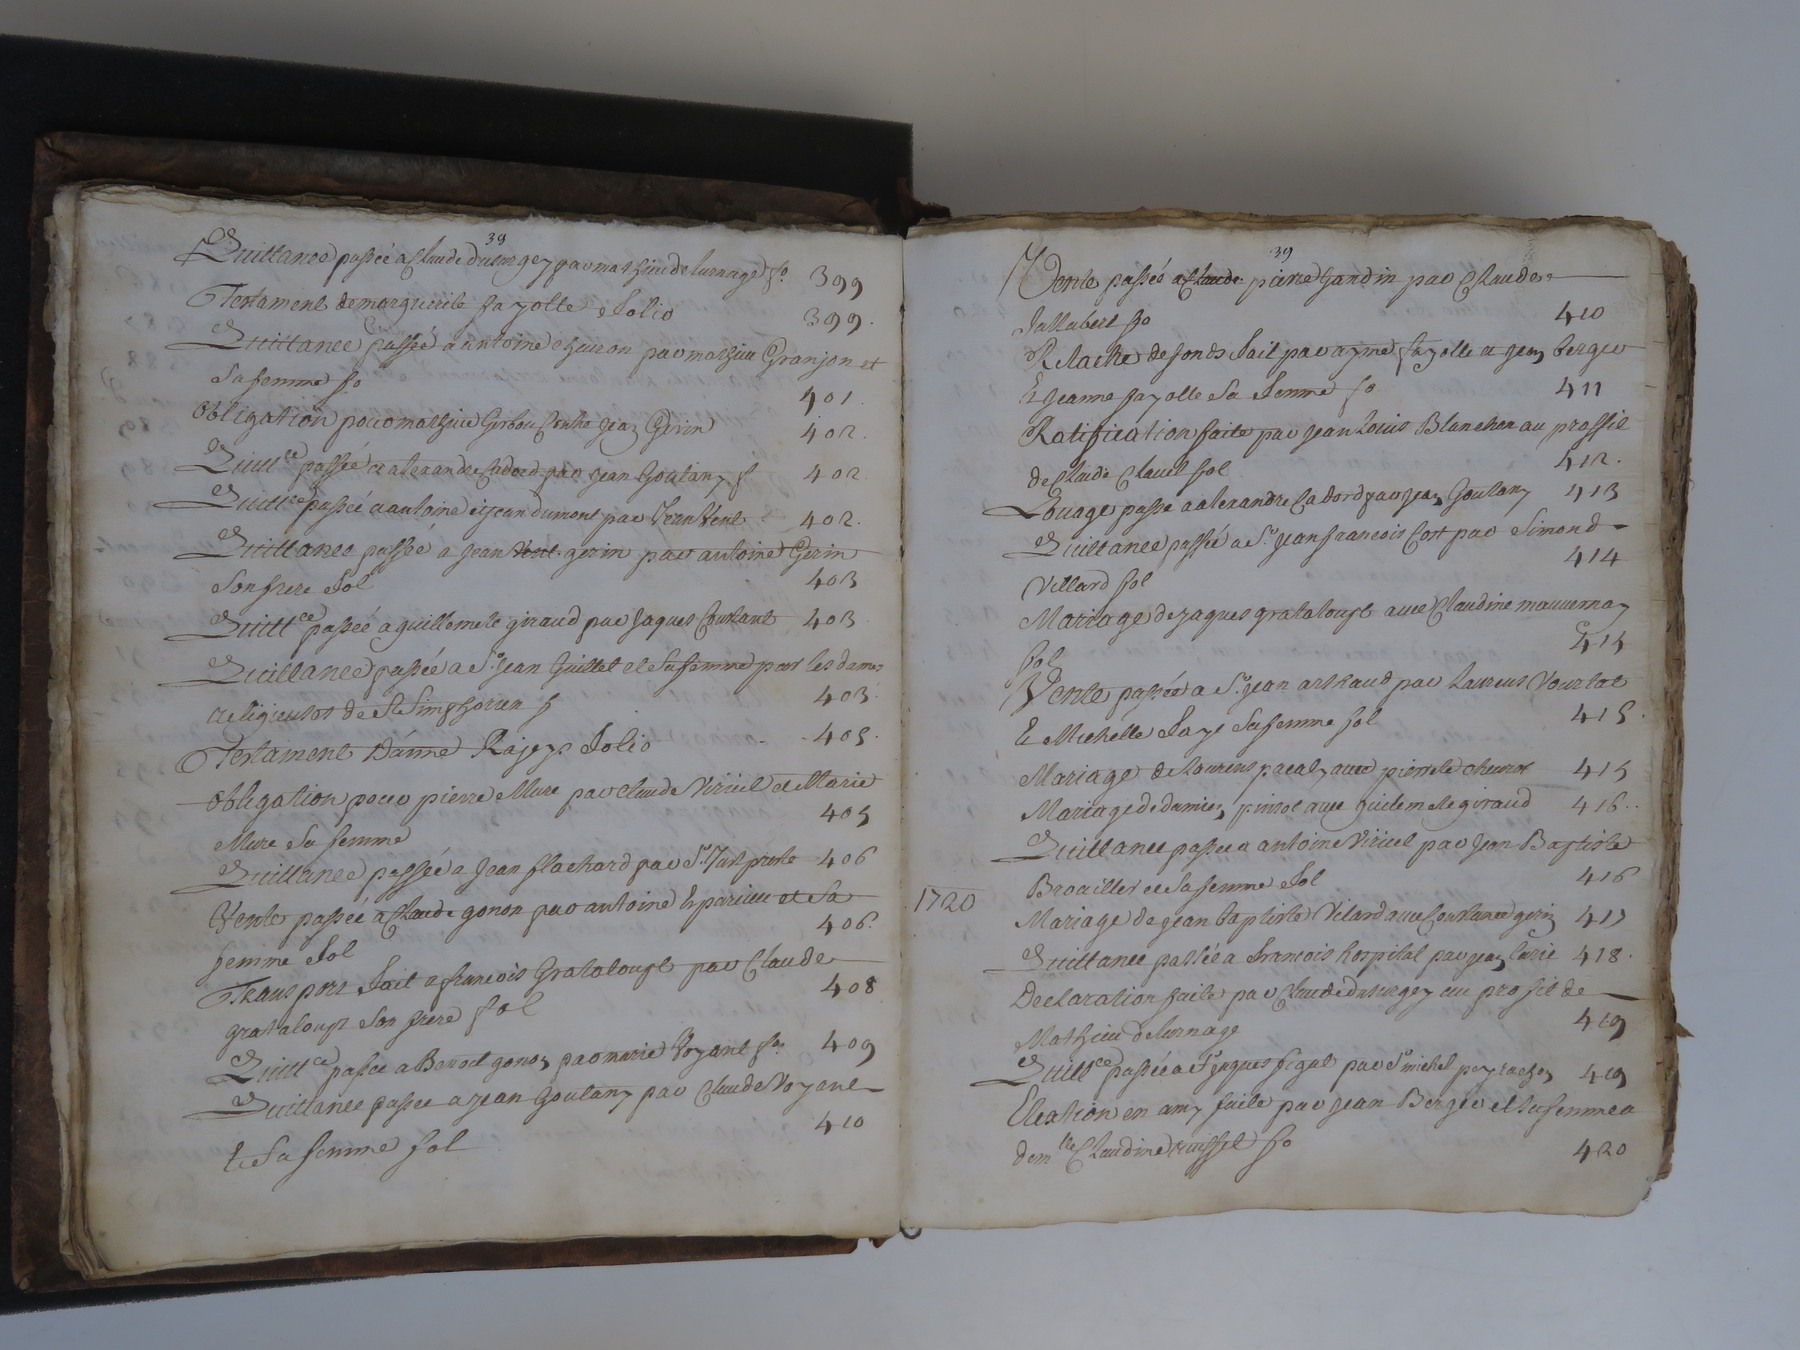 39
Quittance passée a Claude dusurgey par mathieu delurnage fo. 399
Testament de marguerite fayolle folio 399.
Quittance passée a antoine chuzon par mathieu Granjon et
sa femme fo 401.
Obligation pour mathieu Gerbou Contre jean Gerin 402.
Quittce passée a alexandre Cadord par jean Goutany f 402
Quittce passée a antoine et jean dumont par Jean Vent 402.
Quittance passée a jean gerin par antoine Gerin
son frere fol 403
Quittce passée a guillemete giraud par Jaques Constant 403.
Quittance passée a Sr. jean Guillet et sa femme par les dames
religieuses de St Simphorien f 403.
Testament Danne Rajeys folio 405.
Obligation pour pierre Mure par claude Viriel et Marie
Mure sa femme 405
Quittance passée a Jean flachard par Sr. Just preste 406
Vente passée a Claude gonon par antoine et sa
femme fol 406.
Transport fait a francois Grataloupt par Claude
grataloupt son frere fol 408
Quittce passée a Benoit gonon par marie Voyant fo. 409
Quittance passee a jean Goutany par Claude Voyant
Et sa femme fol 410
39
Vente passée a Claude pierre Gandin par Claude
Jallabert fo 410
Relache de fonds fait par ayme fayolle a jean berger
Et Jeanne fayolle sa femme fo 411
Ratification faite par jean Louis Blanchon au proffit
de Claude Clavel fol 412.
Louage passe a alexandre Cadord par jean Goutany 413
Quittance passée a Sr. jean francois Cost par Simond
Villard fol 414
Mariage de jaques grataloupt avec Claudine mauvernay
fol 415
Vente passée a Sr. jean arthaud par Laurens Vourlat
Et Michelle faye sa femme fol 415.
Mariage de Laurens pacaly avec pierrete 415
Mariage de damien pinsot avec guilemete giraud 416.
Quittance passee a antoine Viriel par Jean Baptiste
Broailler et sa femme fol 416
1720
Mariage de jean baptiste Vilard avec Constance gerin 417
Quittance passée a francois hospital par jean 418.
Declaration faite par Claude dusurgey au profit de
Mathieu delurnage 419
Quittce passée a Sr. jaques figat par Sr. michel peyrachon 419
Election en amy faite par jean Berger et sa femme a
demlle Claudine russel fo 420